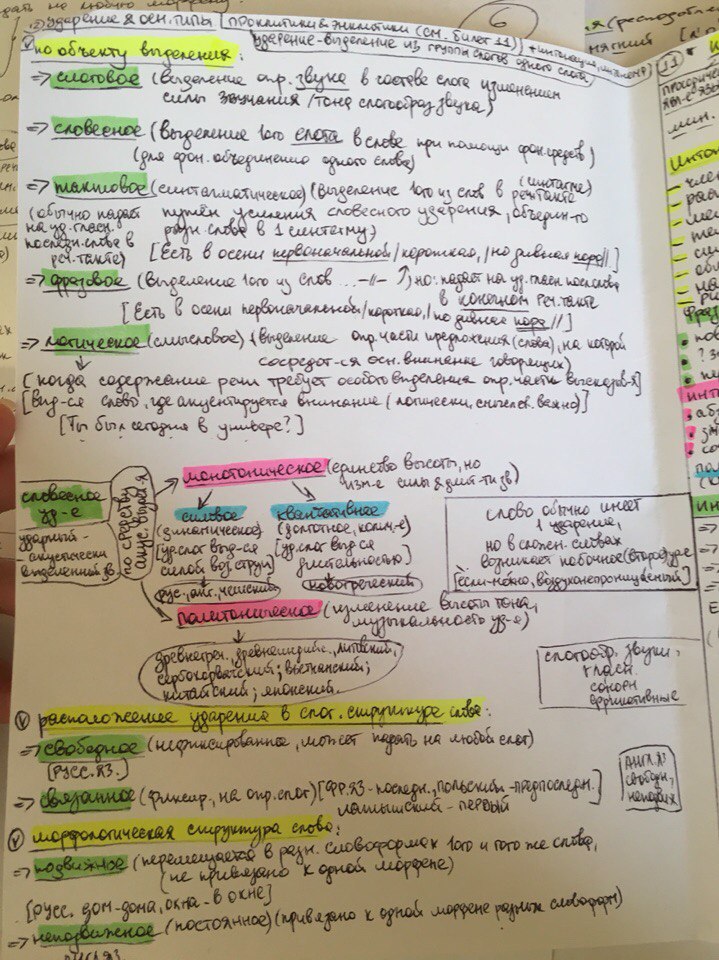 ударение & осн. типы [проклитики & энклитики (см. билет 11)] + интонация,
6
ударение - выделение из группы слогов одного слога
по объекту выделения:
=> слоговое (выделение опр. звука в составе слога изменением
силы звучания / тона слогообраз. звука)
=> словесное (выделение 1ого слога в слове при помощи фон. средств)
(для фон. объединения одного слова)
=> тактовое (синтагматическое) (выделение 1ого из слов в реч. такте (синтагме)
путём усиления словесного ударения, объедин-го
разн. слова в 1 синтагму)
(обычно падает
на уд. гласн.
последн. слова в
реч. такте)
[Есть в осени первоначальной / короткая, / но дивная пора //]
=> фразовое (выделение 1ого из слов ... -//- ) но: падает на уд. гласн. послслова
в конечном реч. такте
[Есть в осени первоначальной / короткая, / но дивная пора //]
=> логическое (смысловое) (выделение опр. части предложения (слова), на которой
сосредот-ся осн. внимание говорящих)
[когда содержание речи требует особого выделения опр. части высказыв-я]
[выд-ся слово, где акцентируется внимание (логически, смыслов. важно)]
[Ты был сегодня в универе?]
словесное
уд-е
ударный -
акустически
выделенный зв.
по средству
акус. выд-я
монотоническое (единство высоты, но
изм-е силы & длит-ти зв)
силовое
(динамическое)
[уд. слог выд-ся
силой возд. струи]
рус., анг., чешский
квантитативное
(долготное, колич-е)
[уд. слог выд-ся
длительностью]
новогреческий
слово обычно имеет
1 ударение,
но в сложн. словах
возникает побочное (второе) уд-е
если-нежно, воздухонепроницаемый
политоническое (изменение высоты тона,
музыкальность уд-я)
древнегреч., древнеиндийс., литовский,
сербохорватский; вьетнамский;
китайский; японский.
слогообр. звуки:
гласн.
сонорн
фрикативные
расположение ударения в слог. структуре слова:
=> свободное (нефиксированное, может падать на любой слог)
[русс. яз.]
=> связанное (фиксир., на опр. слог) [фр. яз - последн., польский - предпоследн.]
латышский - первый
Англ. яз
свободн,
неподвиж
морфологическая структура слова:
=> подвижное (перемещается в разн. словоформах 1ого и того же слова,
(не привязано к одной морфеме)
[русс. дом - дома, окна - в окне]
=> неподвижное (постоянное) (привязано к одной морфеме разных словоформ)
11
мин.